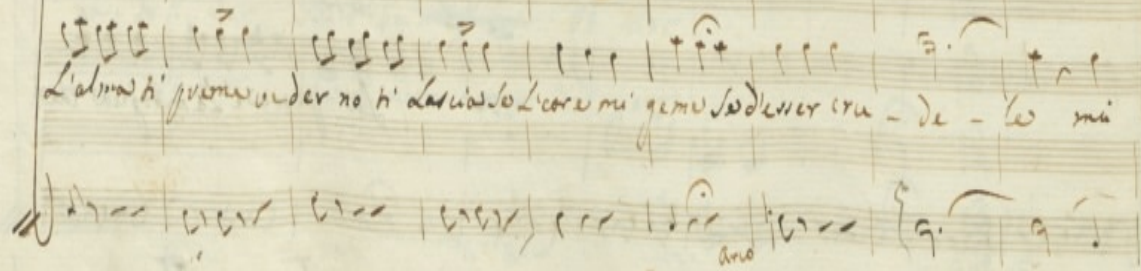 L'alma ti preme veder no ti Lascia se L'core mi geme se d'esser cru - de - le mi
arco